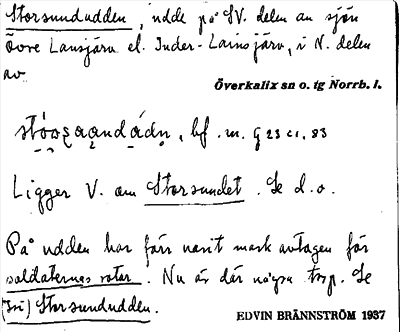 Storsundudden, udde på SV. delen av sjön
Övre Lansjärv el. Inder-Lainsjärv, i N. delen
av
Överkalix sn o. tg Norrb. l.
bf. m. G 23 c1, 83
Ligger V. om Storsundet. Se d.o.
På udden har förr varit mark avtagen för
soldaternas rotar. Nu är där några torp. Se
Storsundudden.
EDVIN BRÄNNSTRÖM 1937